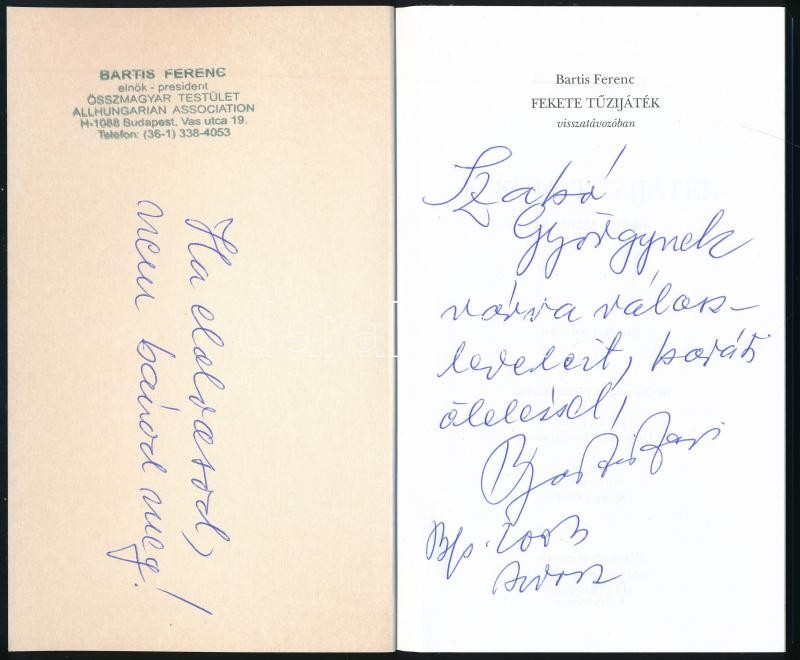 BARTIS FERENC
elnök - president
ÖSSZMAGYAR TESTÜLET
ALLHUNGARIAN ASSOCIATION
H-1088 Budapest, Vas utca 19.
Telefon: (36-1) 338-4053
Ha elolvasod,
nem bánod meg!
Bartis Ferenc
FEKETE TŰZIJÁTÉK
visszatávozóban
Szabó
Györgynek
várva válasz-
leveleit, baráti
öleléssel,
Bartis Feri
Bp. 2003